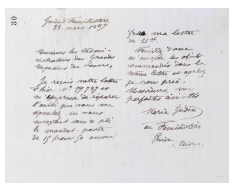 30
Guise
28 mars 1887
Messieurs les Admi-
nistrateurs des Grands
Magasins du Louvre,
Je reçois votre lettre
d'hier Nº
et
m'empresse de réparer
l'oubli que vous me
signalez, en vous
envoyant sous ce pli
le mandat-poste
de
ma lettre
du
Veuillez donc
m'expédier les objets
commandés dans la
même lettre et agréez
je vous prie,
Messieurs, mes
parfaites civilités
Marie
au Familistère
Guise
Aisne